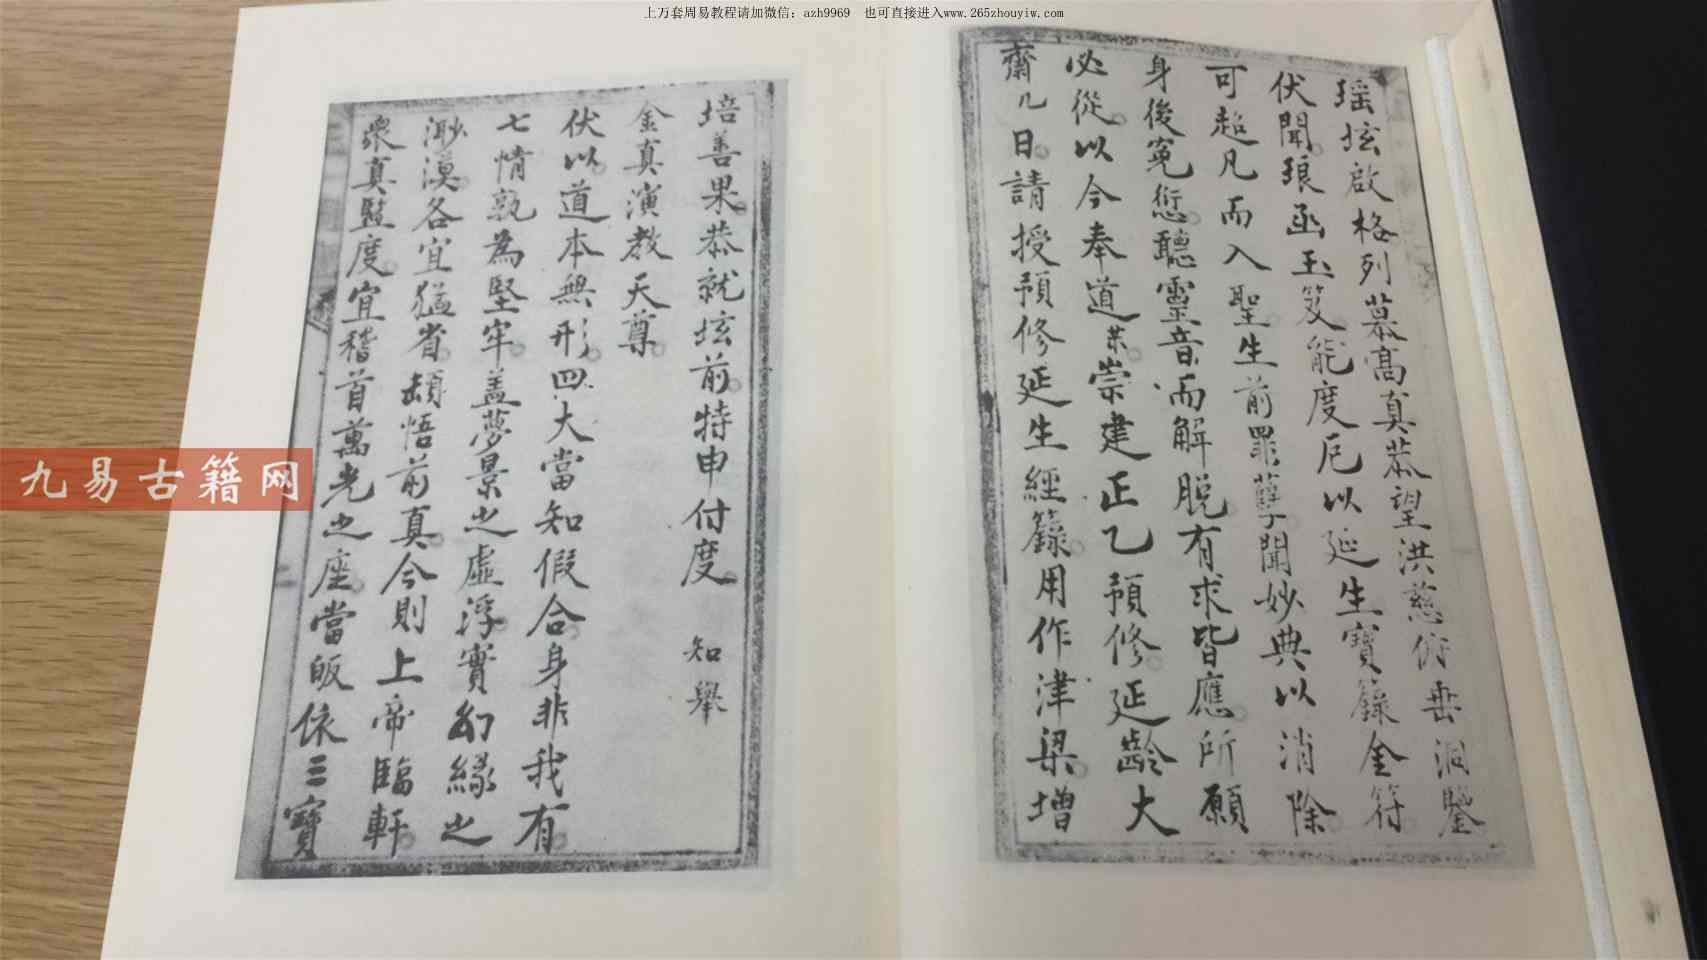 上万套周易教程请加微信：azh9969　也可直接进入www.265zhouyiw.com
瑶坛啟格列慕高真恭望洪慈俯垂洞鑒
伏聞琅函玉笈能度厄以延生寶籙金符
可超凡而入聖生前罪孽聞妙典以消除
身後冤愆聽靈音而解脱有求皆應所願
必從以今奉道某崇建正乙預修延齡大
齋几日請授預修延生經籙用作津梁增
培善果恭就坛前特申付度　知舉
金真演教天尊
伏以道本無形四大當知假合身非我有
七情孰為堅牢盖夢景之虚浮實幻緣之
渺漠各宜猛省頓悟前真今則上帝臨軒
衆真監度宜稽首萬光之座當皈依三寶
九易古籍网